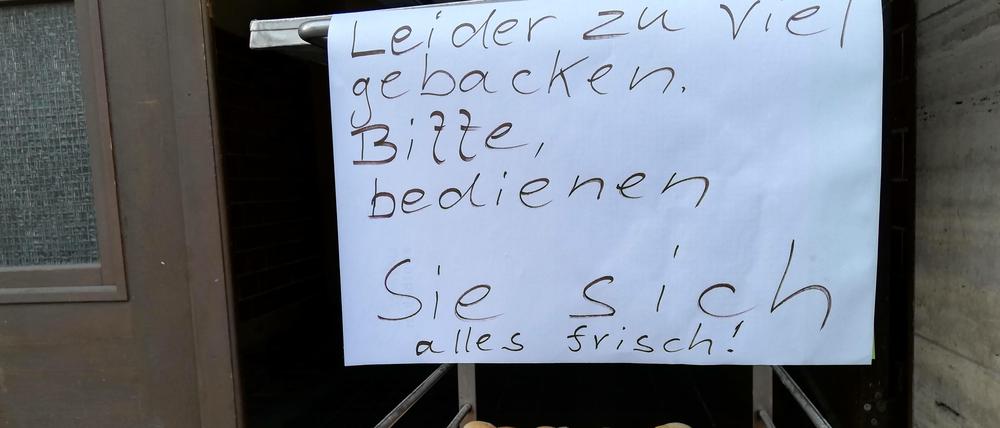 Leider zu viel
gebacken.
Bitte,
bedienen
Sie sich
alles frisch!